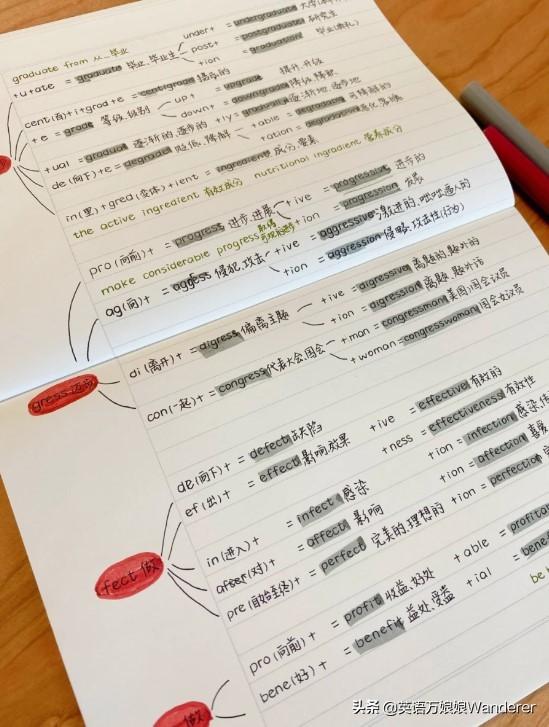 graduate from 从...毕业
+u+ate = graduate 毕业,毕业生
under+ = undergraduate
post+ = postgraduate 研究生
+ion = graduation 毕业(典礼)
cent(百)+i+grad+e = centigrade 摄氏的
+e = grade 等级,级别
up+ = upgrade 提升,升级
down+ = downgrade 降级,降职
+ual = gradual 逐渐的,逐步的
+ly = gradually 逐渐地,逐步地
de(向下)+e = degrade
+able = degradable 可降解的
+ation = degradation
in(里)+gred(变体)+ient = ingredient 成分,要素
the active ingredient 有效成分 nutritional ingredient 营养成分
pro(向前)+ = progress 进步,进展
+ive = progressive 进步的
+ion = progression 发展
make considerable progress
ag(向)+ = aggess 侵犯,攻击
+ive = aggressive 激进的,咄咄逼人的
+ion = aggression 侵略,攻击性(行为)
gress
di(离开)+ = digress 偏离主题
+ive = digressive 离题的,题外的
+ion = digression 离题,题外话
con(一起)+ = congress 代表大会,国会
+man = congressman 美国国会议员
+woman = congresswoman 国会女议员
de(向下)+ = defect 缺陷
ef(出)+ = effect 影响,效果
+ive = effective 有效的
+ness = effectiveness 有效性
fect 做
in(进入)+ = infect 感染
+ion = infection 感染,
after(对)+ = affect 影响
+ion = affection 喜爱
pre(自始至终)+ = perfect 完美的,理想的
+ion = perfection
pro(向前)+ = profit 收益,好处
+able = profita
bene(好)+ = benefit 益处,受益
+ial = bene
be
做
头条 @英语万娘娘Wanderer